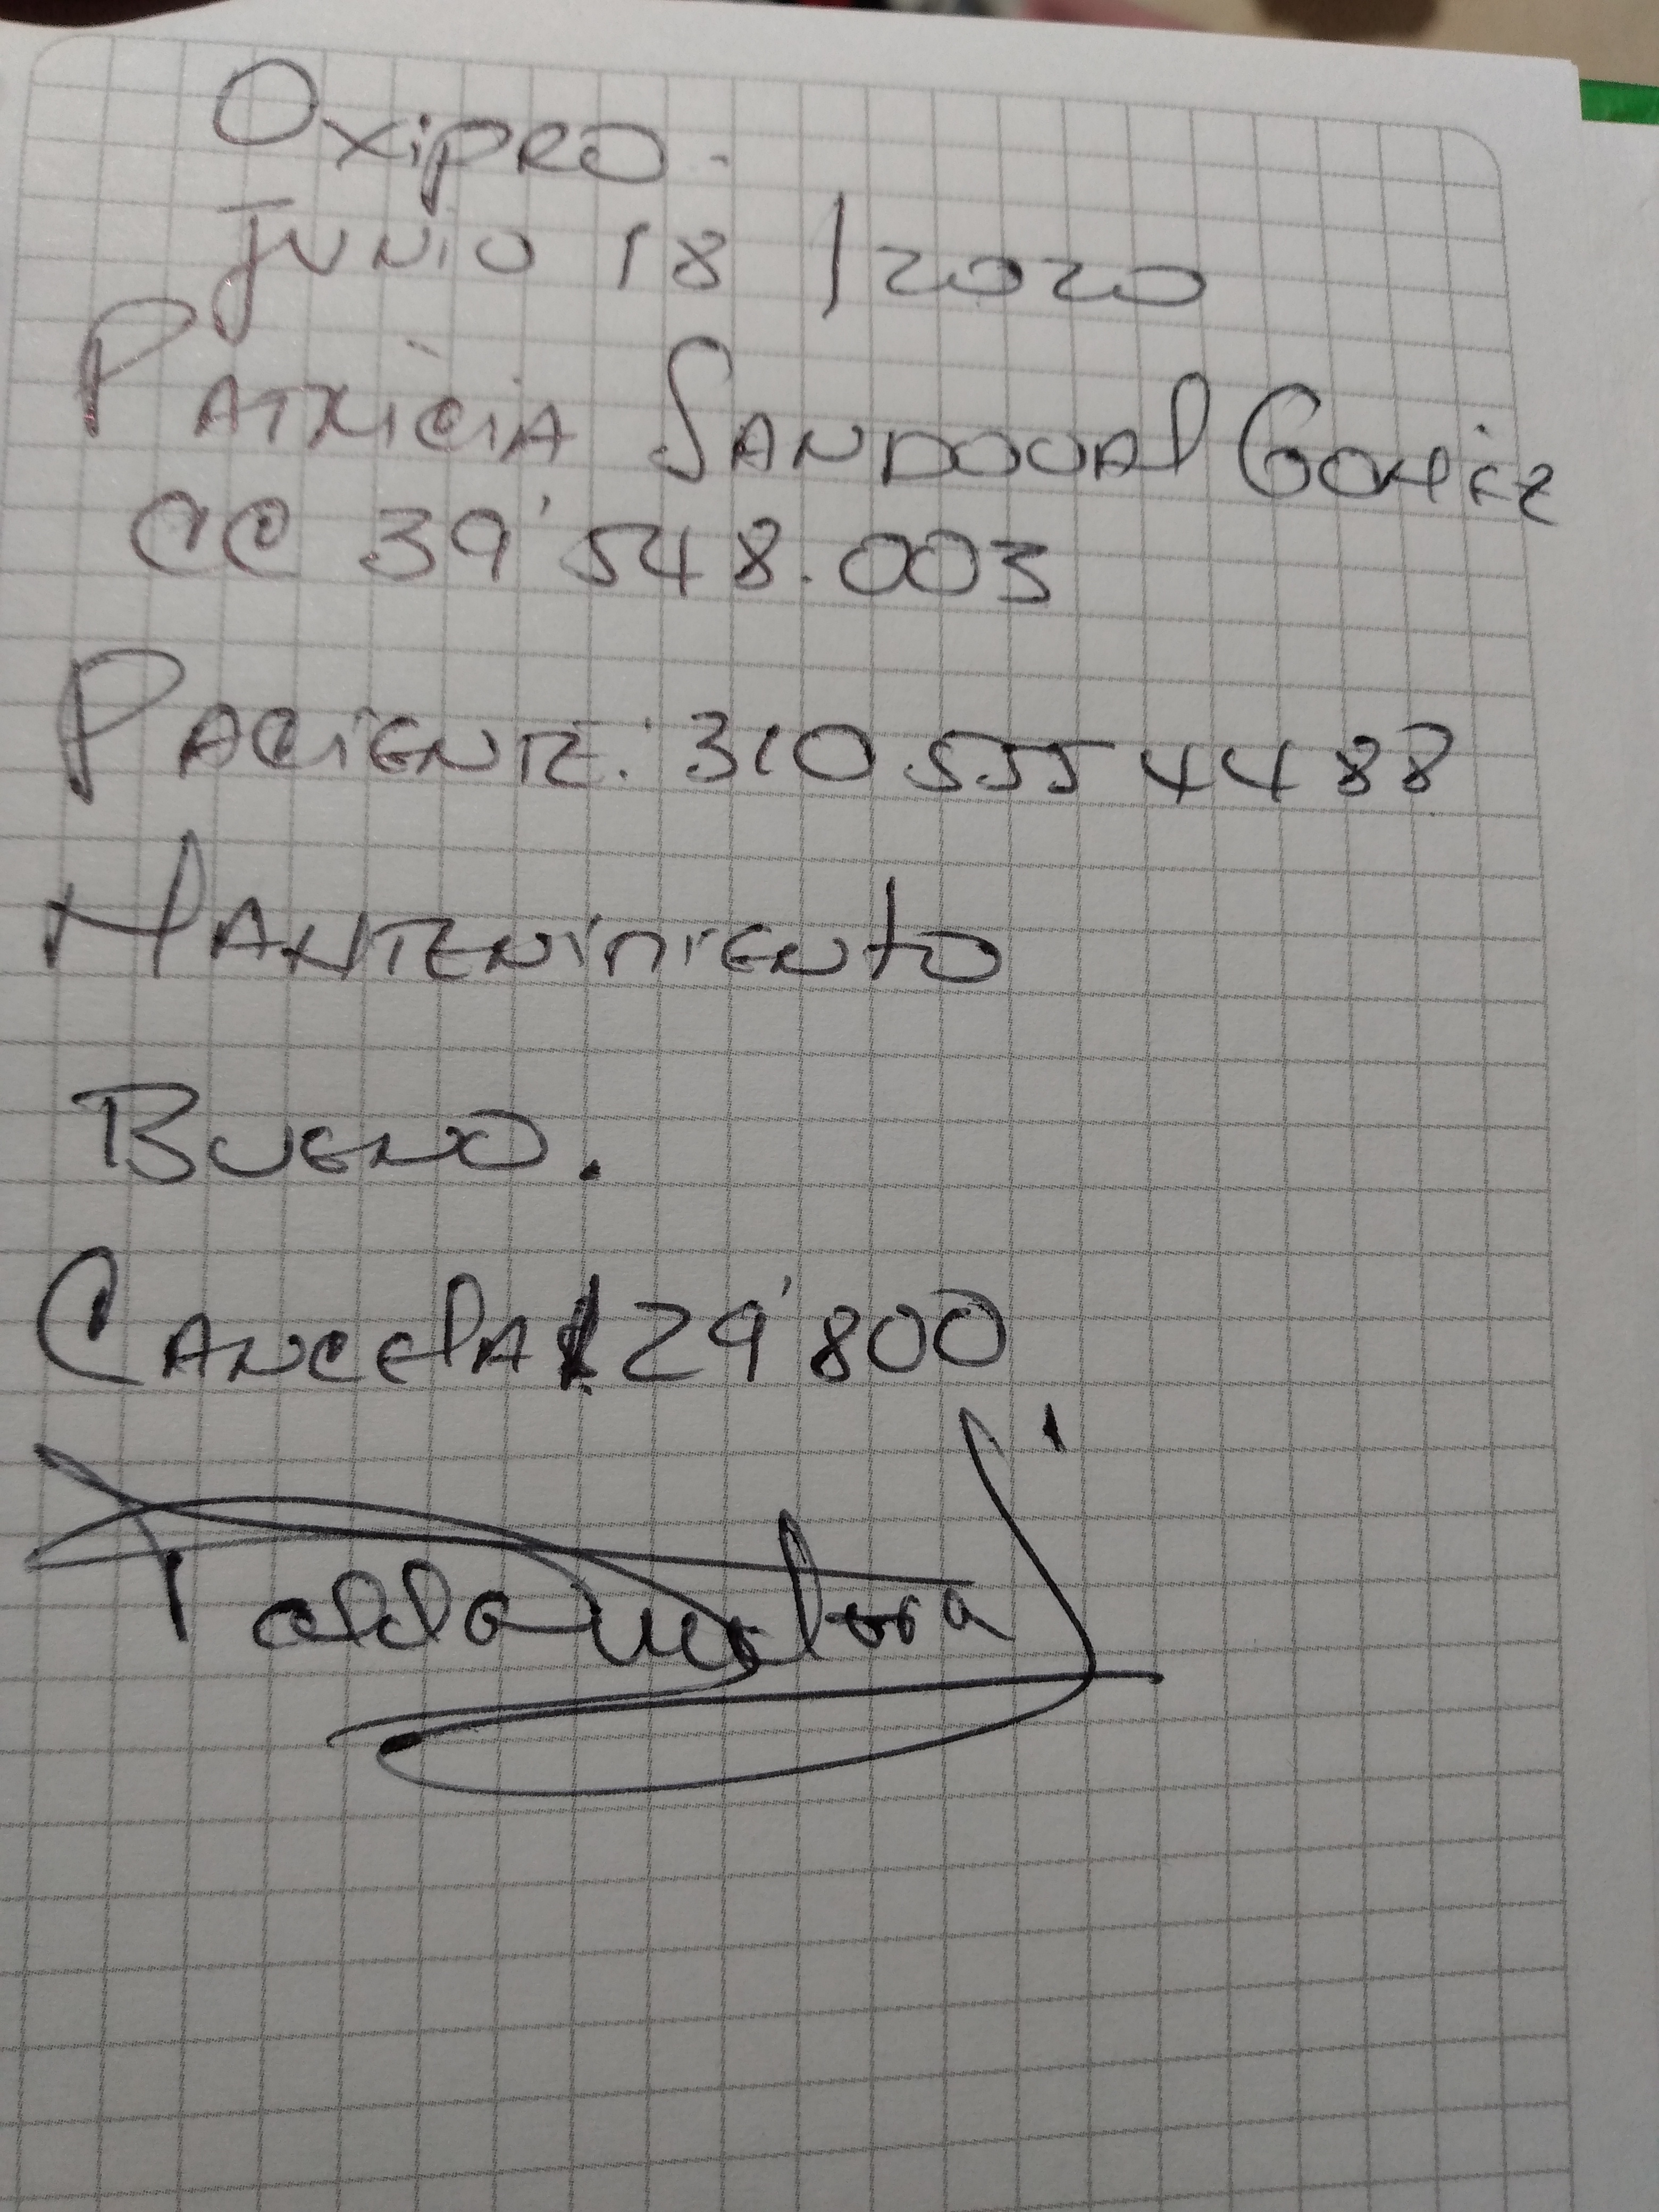 OxiPRO.
Junio 18 / 2020
PATRICIA SANDOVAL Gomez
CC 39'548.003
PACIENTE: 310 555 44 88
MANTENIMIENTO
BUENO.
CANCELA $ 29'800